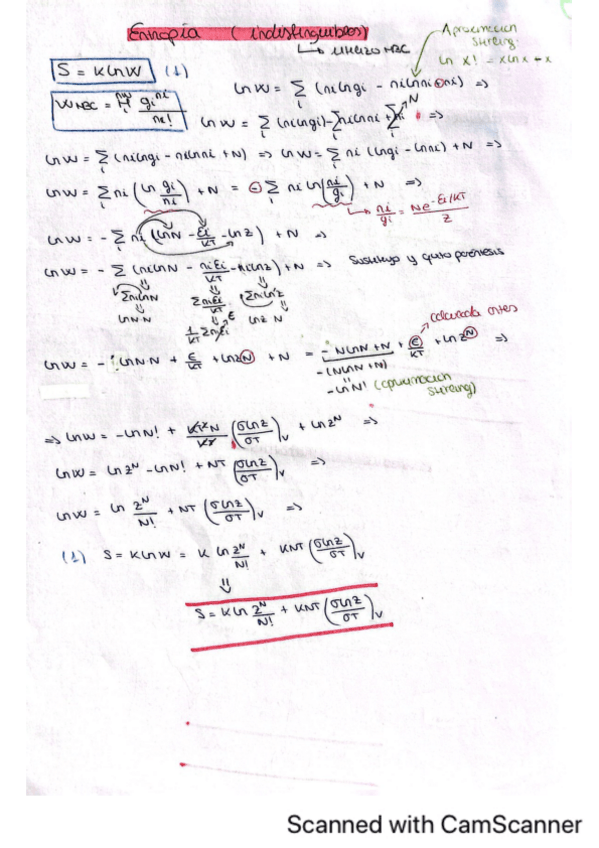 Entropía (indistinguibles)
↳ utilizo MBC
Aproximación
stirling:
ln x! = xlnx - x
S = k ln W (1)
W_MBC = ∏ gi^ni / ni!
ln W = Σ_i (ni ln gi - ni ln ni + ni) =>
ln W = Σ_i (ni ln gi) - Σ_i ni ln ni + Σ_i ni => N
ln W = Σ_i (ni ln gi - ni ln ni + N) => ln W = Σ_i ni (ln gi - ln ni) + N =>
ln W = Σ_i ni (ln gi/ni) + N = - Σ_i ni ln(ni/gi) + N =>
↳ ni/gi = Ne^-Ei/KT / Z
ln W = - Σ_i ni (ln N - Ei/KT - ln Z) + N =>
ln W = - Σ_i (ni ln N - niEi/KT - ni ln Z) + N => Sustituyo y quito paréntesis
Σ ni ln N Σ niEi/KT Σ ni ln Z
ln N·N 1/KT Σ niEi E ln Z N
calculada antes
ln W = - ln N·N + E/KT + ln Z N + N = - N ln N + N + E/KT + ln Z^N =>
-(N ln N + N)
- ln N! (aproximación
stirling)
=> ln W = - ln N! + KT²N/KT (σ ln Z/σT)_V + ln Z^N =>
ln W = ln Z^N - ln N! + NT (σ ln Z/σT)_V =>
ln W = ln Z^N/N! + NT (σ ln Z/σT)_V =>
(1) S = k ln W = k ln Z^N/N! + KNT (σ ln Z/σT)_V
S = k ln Z^N/N! + KNT (σ ln Z/σT)_V
Scanned with CamScanner